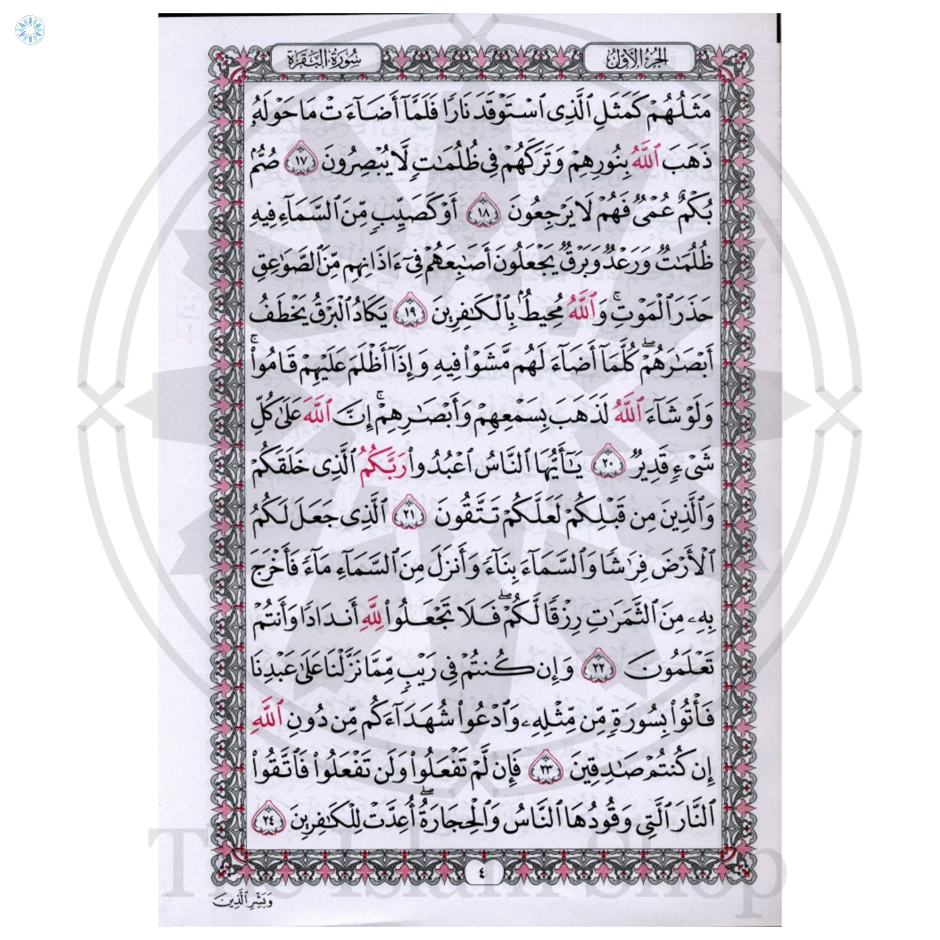 الجزء الأول
سورة البقرة
مَثَلُهُمْ كَمَثَلِ ٱلَّذِى ٱسْتَوْقَدَ نَارًا فَلَمَّآ أَضَآءَتْ مَا حَوْلَهُۥ
ذَهَبَ ٱللَّهُ بِنُورِهِمْ وَتَرَكَهُمْ فِى ظُلُمَٰتٍ لَّا يُبْصِرُونَ ١٧ صُمٌّۢ
بُكْمٌ عُمْىٌ فَهُمْ لَا يَرْجِعُونَ ١٨ أَوْ كَصَيِّبٍ مِّنَ ٱلسَّمَآءِ فِيهِ
ظُلُمَٰتٌ وَرَعْدٌ وَبَرْقٌ يَجْعَلُونَ أَصَٰبِعَهُمْ فِىٓ ءَاذَانِهِم مِّنَ ٱلصَّوَٰعِقِ
حَذَرَ ٱلْمَوْتِ ۚ وَٱللَّهُ مُحِيطٌۢ بِٱلْكَٰفِرِينَ ١٩ يَكَادُ ٱلْبَرْقُ يَخْطَفُ
أَبْصَٰرَهُمْ ۖ كُلَّمَآ أَضَآءَ لَهُم مَّشَوْا۟ فِيهِ وَإِذَآ أَظْلَمَ عَلَيْهِمْ قَامُوا۟ ۚ
وَلَوْ شَآءَ ٱللَّهُ لَذَهَبَ بِسَمْعِهِمْ وَأَبْصَٰرِهِمْ ۚ إِنَّ ٱللَّهَ عَلَىٰ كُلِّ
شَىْءٍ قَدِيرٌ ٢٠ يَٰٓأَيُّهَا ٱلنَّاسُ ٱعْبُدُوا۟ رَبَّكُمُ ٱلَّذِى خَلَقَكُمْ
وَٱلَّذِينَ مِن قَبْلِكُمْ لَعَلَّكُمْ تَتَّقُونَ ٢١ ٱلَّذِى جَعَلَ لَكُمُ
ٱلْأَرْضَ فِرَٰشًا وَٱلسَّمَآءَ بِنَآءً وَأَنزَلَ مِنَ ٱلسَّمَآءِ مَآءً فَأَخْرَجَ
بِهِۦ مِنَ ٱلثَّمَرَٰتِ رِزْقًا لَّكُمْ ۖ فَلَا تَجْعَلُوا۟ لِلَّهِ أَندَادًا وَأَنتُمْ
تَعْلَمُونَ ٢٢ وَإِن كُنتُمْ فِى رَيْبٍ مِّمَّا نَزَّلْنَا عَلَىٰ عَبْدِنَا
فَأْتُوا۟ بِسُورَةٍ مِّن مِّثْلِهِۦ وَٱدْعُوا۟ شُهَدَآءَكُم مِّن دُونِ ٱللَّهِ
إِن كُنتُمْ صَٰدِقِينَ ٢٣ فَإِن لَّمْ تَفْعَلُوا۟ وَلَن تَفْعَلُوا۟ فَٱتَّقُوا۟
ٱلنَّارَ ٱلَّتِى وَقُودُهَا ٱلنَّاسُ وَٱلْحِجَارَةُ ۖ أُعِدَّتْ لِلْكَٰفِرِينَ ٢٤
٤
وَبَشِّرِ الَّذِينَ
The Islam Shop